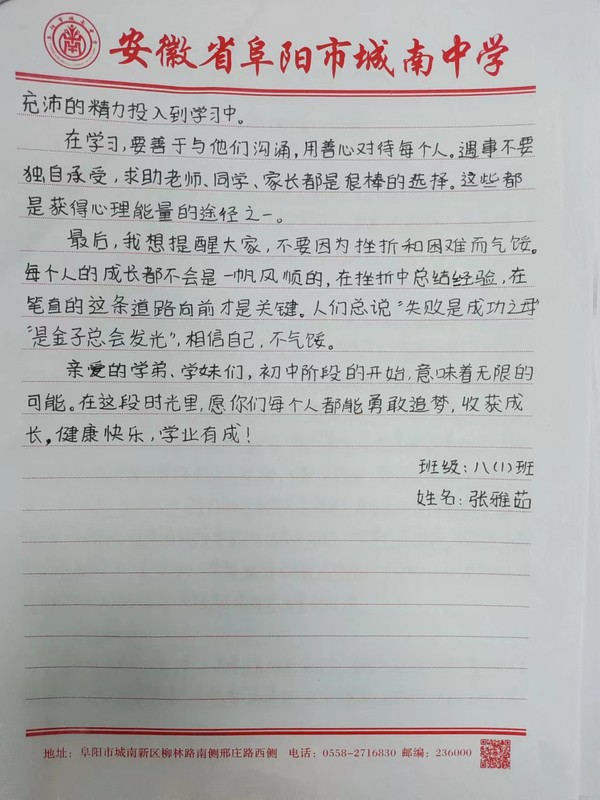 安徽省阜阳市城南中学
充沛的精力投入到学习中。
在学习,要善于与他们沟涌,用善心对待每个人。遇事不要
独自承受,求助老师、同学、家长都是很棒的选择。这些都
是获得心理能量的途径之一。
最后,我想提醒大家,不要因为挫折和困难而气馁。
每个人的成长都不会是一帆风顺的,在挫折中总结经验,在
笔直的这条道路向前才是关键。人们总说“失败是成功之母”
“是金子总会发光”,相信自己,不气馁。
亲爱的学弟、学妹们,初中阶段的开始,意味着无限的
可能。在这段时光里,愿你们每个人都能勇敢追梦,收获成
长,健康快乐,学业有成!
班级:八(1)班
姓名:张雅茹
地址:阜阳市城南新区柳林路南侧邢庄路西侧 电话:0558-2716830 邮编:236000